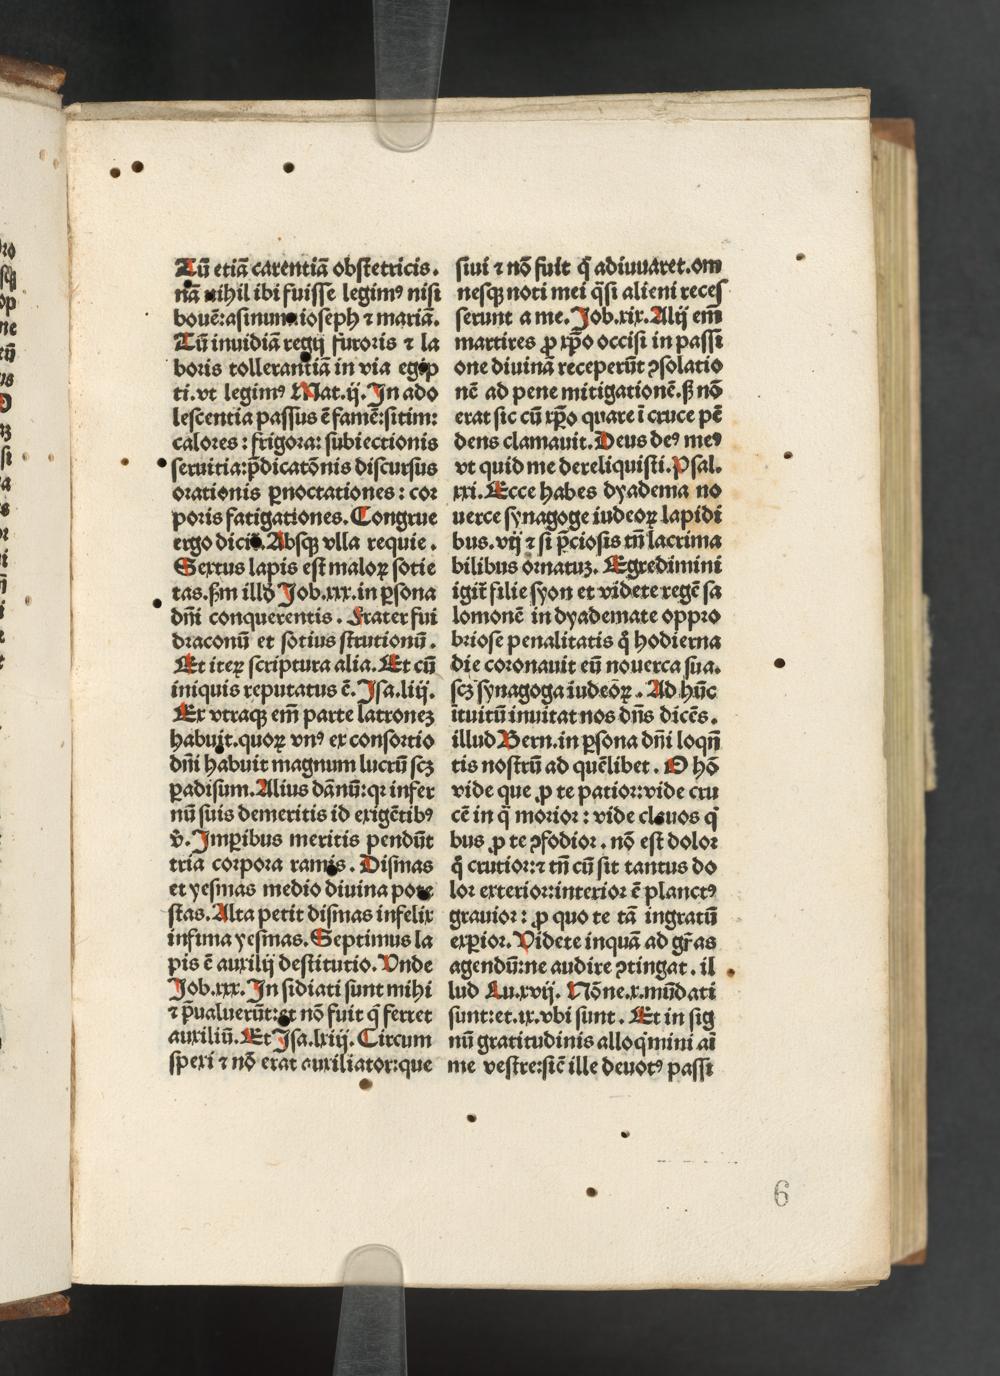 Tū etiā carentiā obstetricis.
nā nihil ibi fuisse legimꝰ nisi
bouē:asinum ioseph ⁊ mariā.
Tū inuidiā regij furoris ⁊ la
boris tollerantiā in via egip
ti.vt legimꝰ Mat.ij.In ado
lescentia passus ē famē:sitim:
calores:frigora:subiectionis
seruitia:p̄dicatōnis discursus
orationis ꝑnoctationes:cor
poris fatigationes.Congrue
ergo dicit.Absqꝫ vlla requie.
Sextus lapis est maloꝝ sotie
tas.ẜm illḋ Job.xxx.in ꝑsona
dn̄i conquerentis.Frater fui
draconū et sotius strutionū.
Et iteꝝ scriptura alia.Et cū
iniquis reputatus ē.Isa.liij.
Ex vtraqꝫ em̄ parte latroneꝫ
habuit.quoꝝ vnꝰ ex consortio
dn̄i habuit magnum lucrū scꝫ
ꝑadisum.Alius dānū:qꝛ infer
nū suis demeritis id exigētibꝰ
v̄.Imꝑibus meritis pendūt
tria corpora ramis.Dismas
et yesmas medio diuina pote
stas.Alta petit dismas infelix
infima yesmas.Septimus la
pis ē auxilij destitutio.Vnde
Job.xxx.In sidiati sunt mihi
⁊ p̄ualuerūt:et nō fuit q̄ ferret
auxiliū.Et Isa.lxiij.Circum
spexi ⁊ nō erat auxiliator:que
siui ⁊ nō fuit q̄ adiuuaret.om
nesqꝫ noti mei q̄si alieni reces
serunt a me.Job.xix.Alij em̄
martires ꝓ xp̄o occisi in passi
one diuinā receperūt ꝯsolatio
nē ad pene mitigationē.ß nō
erat sic cū xp̄o quare ī cruce pē
dens clamauit.Deus deꝰ meꝰ
vt quid me dereliquisti.Psal.
xxi.Ecce habes dyadema no
uerce synagoge iudeoꝝ lapidi
bus.vij ⁊ si p̄ciosis tn̄ lacrima
bilibus ornatuꝫ.Egredimini
igit̄ filie syon et videte regē sa
lomonē in dyademate oppro
briose penalitatis q̄ hodierna
die coronauit eū nouerca sua.
scꝫ synagoga iudeōꝝ.Ad hūc
ituitū inuitat nos dn̄s dicēs.
illud Bern.in ꝑsona dn̄i loqn̄
tis nostrū ad quēlibet.O hō
vide que ꝓ te patior:vide cru
cē in q̄ morior:vide clauos q̄
bus ꝓ te ꝯfodior.nō est dolor
q̄ crutior:⁊ tn̄ cū sit tantus do
lor exterior:interior ē planctꝰ
grauior:ꝓ quo te tā ingratū
exꝑior.Videte inquā ad gr̄as
agendū:ne audire ꝯtingat.il
lud Lu.xvij.Nōne.x.mūdati
sunt:et.ix.vbi sunt.Et in sig
nū gratitudinis alloq̄mini aī
me vestre:sic̄ ille deuotꝰ passi
6